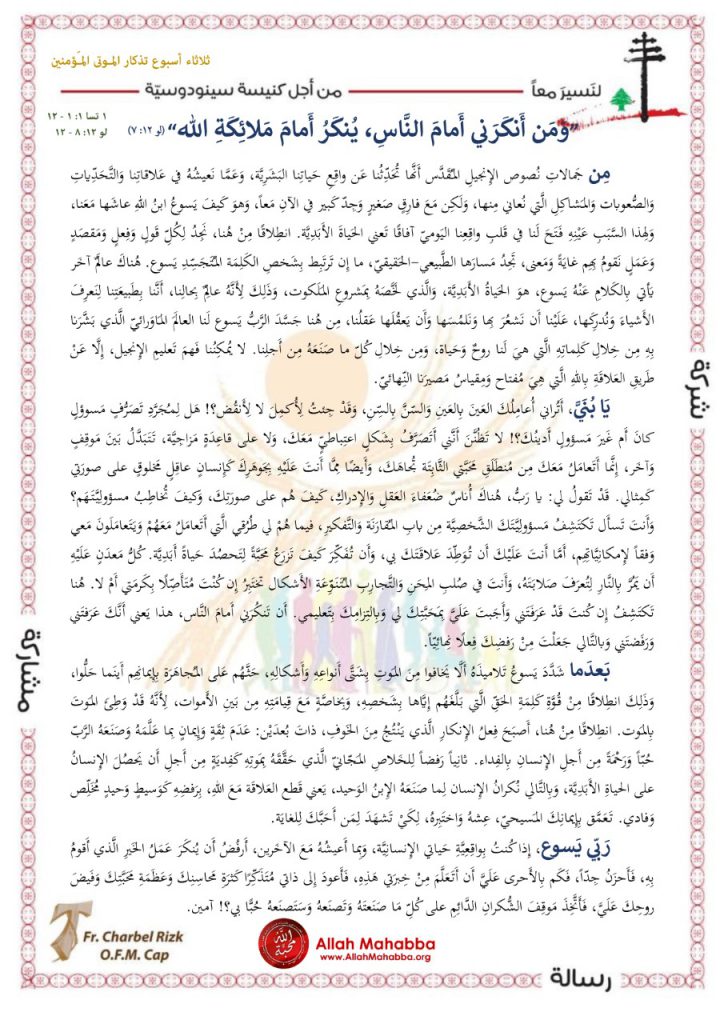 ثلاثاء أسبوع تذكار الموتى المؤمنين
لنَسيرَ معاً
من أجل كنيسة سينودوسيّة
١ تسا ١: ١ - ١٢
لو ١٢: ٨ - ١٢
“وَمَن أَنكَرَني أَمامَ النَّاسِ، يُنكَرُ أَمامَ مَلائِكَةِ الله” (لو ١٢: ٧)
مِن جَمالاتِ نُصوص الإنجيل المُقَدَّس أَنَّها تُحَدِّثُنا عَن واقِعِ حَياتِنا البَشَرِيَّة، وَعَمَّا نَعيشُهُ في عَلاقاتِنا وَالتَّحَدِّياتِ
وَالصُّعوبات وَالمَشاكِل الَّتي نُعاني مِنها، وَلَكِن مَعَ فارِقٍ صَغيرٍ وَجِدّ كَبير في الآنِ مَعاً، وَهوَ كَيفَ يَسوعُ ابنُ اللهِ عاشَها مَعَنا،
وَلِهذا السَّبَبِ عَيْنِهِ فَتَحَ لَنا في قَلبِ واقِعِنا اليَوميّ آفاقًا تَعني الحَياةَ الأَبَدِيَّة. انطِلاقًا مِنْ هُنا، نَجِدُ لِكُلّ قَولٍ وَفِعلٍ وَمَقصَدٍ
وَعَمَلٍ نَقومُ بِهِم غايَةً وَمَعنى، نَجِدُ مَسارَها الطَّبيعي-الحَقيقيّ، ما إن تَرتَبِط بِشَخصِ الكَلِمَة المُتَجَسِّدِ يَسوع. هُناكَ عالَمٌ آخَر
يَأتي بِالكَلامِ عَنْهُ يَسوع، هوَ الحَياةُ الأَبَدِيَّة، وَالَّذي لَخَّصَهُ بِمَشروعِ المَلَكوت، وَذَلِكَ لِأَنَّهُ عالِمٌ بِحالِنا، أَنَّنا بِطَبيعَتِنا لِنَعرِفَ
الأَشياءَ وَنُدرِكَها، عَلَيْنا أَن نَشعُرَ بِها وَنَلمُسَها وَأَن يَعقُلَها عَقلُنا، مِن هُنا جَسَّدَ الرَّبُّ يَسوع لَنا العالَمَ الماوَرائيّ الَّذي بَشَّرَنا
بِهِ مِن خِلالِ كَلِماتِهِ الَّتي هيَ لَنا روحٌ وَحَياة، وَمِن خِلالِ كُلّ ما صَنَعَهُ مِن أَجلِنا. لا يُمكِنُنا فَهمَ تَعليمِ الإنجيل، إلَّا عَنْ
طَريقِ العَلاقَةِ بِاللهِ الَّتي هِيَ مُفتاح وَمِقياسُ مَصيرِنا النِّهائيّ.
يَا بُنَيَّ، أَتُراني أُعامِلُكَ العَينَ بِالعَينِ وَالسّنَّ بِالسِّنِ، وَقَدْ جِئتُ لِأُكمِلَ لا لِأَنقُضْ؟! هَل لِمُجَرَّدِ تَصَرُّفٍ مَسؤولٍ
كانَ أم غَيرَ مَسؤولٍ أَدينُكَ؟! لا تَظُنَّنَّ أَنَّني أَتَصَرَّفُ بِشَكلٍ اعتِباطيّ مَعَكَ، وَلا على قاعِدَةٍ مَزاجِيَّة، تَتَبَدَّلُ بَيْنَ مَوقِفٍ
وَآخَر، إِنَّما أَتَعامَلُ مَعَكَ مِن مُنطَلَقِ مَحَبَّتي الثَّابِتَة تُجاهَكَ، وَأَيضًا مِمَّا أَنتَ عَلَيْهِ بِجَوهَرِكَ كَإنسانٍ عاقِلٍ مَخلوقٍ على صورَتي
كَمِثالي. قَدْ تَقولُ لي: يا رَبُّ، هُناكَ أُناسٌ ضُعَفاءُ العَقلِ وَالإدراكِ، كَيفَ هُم على صورَتِكَ، وَكَيفَ تُخاطِبُ مسؤوليَّتَهم؟
وَأَنتَ تَسأَل تَكتَشِفُ مَسؤوليَّتَكَ الشَّخصِيَّة مِن بابِ المُقارَنَة وَالتَّفكير، فيما هُمْ لي طُرُقي الَّتي أَتَعامَلُ مَعَهُمْ وَيَتَعامَلونَ مَعي
وَفقاً لِإمكانِيَّاتِهِم، أَمَّا أَنتَ عَلَيكَ أَن تُوَطِّدَ عَلاقَتَكَ بي، وَأَن تُفَكِّرَ كَيفَ تَزرَعُ مَحَبَّةً لِتَحصُدَ حَياةً أَبَدِيَّة. كُلُّ مَعدَنٍ عَلَيْهِ
أَن يَمُرَّ بِالنَّارِ لِتُعرَفَ صَلابَتُهُ، وَأَنتَ في صُلبِ المِحَنِ وَالتَّجارِبِ المُتَنَوِّعَةِ الأَشكال تَختَبِرُ إن كُنْتَ مُتَأَصِّلًا بِكَرمَتي أَمْ لا. هُنا
تَكتَشِفُ إن كُنتَ قَدْ عَرَفتَني وَأَجَبتَ عَلَيَّ بِمَحَبَّتِكَ لي وَبِالتِزامِكَ بِتَعليمي. أَن تَنكُرَني أَمامَ النَّاس، هذا يَعني أَنَّكَ عَرَفتَني
وَرَفَضتَني وَبالتَّالي جَعَلْتَ مِنْ رَفضِكَ فِعلًا نِهائيًّا.
بَعدَما شَدَّدَ يَسوعُ تَلاميذَهُ أَلَّا يَخافوا مِنَ المَوتِ بِشَتَّى أَنواعِهِ وَأَشكالِهِ، حَثَّهُم عَلى المُجاهَرَةِ بِإيمانِهِم أَينَما حَلُّوا،
وَذَلِكَ انطِلاقًا مِنْ قُوَّةِ كَلِمَةِ الحَقّ الَّتي بَلَّغَهُم إِيَّاها بِشَخصِهِ، وَبِخاصَّةٍ مَعَ قِيامَتِهِ مِن بَينِ الأَموات، لِأَنَّهُ قَدْ وَطِئَ المَوتَ
بِالمَوت. انطِلاقًا مِنْ هُنا، أَصبَحَ فِعلُ الإنكارِ الَّذي يَنْتُجُ مِنَ الخَوفِ، ذاتَ بُعدَيْن: عَدَمَ ثِقَةٍ وَإيمانٍ بِما عَلَّمَهُ وَصَنَعَهُ الرَّبّ
حُبّاً وَرَحْمَةً مِن أَجلِ الإنسانِ بِالفِداء. ثانِياً رَفضاً لِلخَلاصِ المَجّانيّ الَّذي حَقَّقَهُ بِمَوتِهِ كَفِديَةٍ مِن أَجلِ أَن يَحصُلَ الإنسانُ
على الحَياةِ الأَبَدِيَّة، وَبِالتالي نُكرانُ الإنسان لِما صَنَعَهُ الإبنُ الوَحيد، يَعني قَطعَ العَلاقَة مَعَ اللهِ، بِرَفضِهِ كَوَسيطٍ وَحيدٍ مُخَلِّص
وَفادي. تَعَمَّق بِإيمانِكَ المَسيحيّ، عِشهُ وَاختَبِرهُ، لِكَيْ تَشهَدَ لِمَن أَحَبَّكَ لِلغايَة.
رَبّي يَسوع، إذا كُنتُ بِواقِعِيَّةِ حَياتي الإنسانِيَّة، وَبِما أَعيشُهُ مَعَ الآخَرين، أَرفُضُ أَن يُنكَرَ عَمَلُ الخَيرِ الَّذي أَقومُ
بِهِ، فَأَحزَنُ جِدّاً، فَكَم بِالأَحرى عَلَيَّ أَن أَتَعَلَّمَ مِنْ خِبرَتي هَذِهِ، فَأَعودَ إلى ذاتي مُتَذَكِّرًا كَثرَةَ مَحاسِنِكَ وَعَظَمَةِ مَحَبَّتِكَ وَفَيضَ
روحِكَ عَلَيَّ، فَأَتَّخِذَ مَوقِفَ الشُّكرانِ الدَّائِمِ على كُلّ ما صَنَعتَهُ وَتَصنَعَهُ وَسَتَصنَعهُ حُبًّا بي؟! آمين.
شركة
مشاركة
رسالة
Fr. Charbel Rizk
O.F.M. Cap
الله محبة
Allah Mahabba
www.AllahMahabba.org